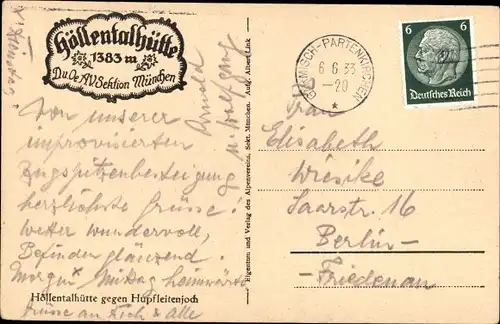 Höllentalhütte
1383 m
D.u.Oe.AV.Sektion München
Von unserer
improvisierten
Zugspitzenbesteigung
herzlichste Grüsse!
Wetter wundervoll,
Befinden glänzend.
Morgen Mittag heimwärts
Grüsse an Dich & alle
Arnold
u. Wolfgang
Höllentalhütte gegen Hupfleitenjoch
Eigentum und Verlag des Alpenvereins, Sekt. München. Aufn. Albert Link
GARMISCH-PARTENKIRCHEN
6 6. 33
-20
6
6
Deutsches Reich
Frau
Elisabeth
Wiesike
Saarstr. 16
Berlin-
Friedenau